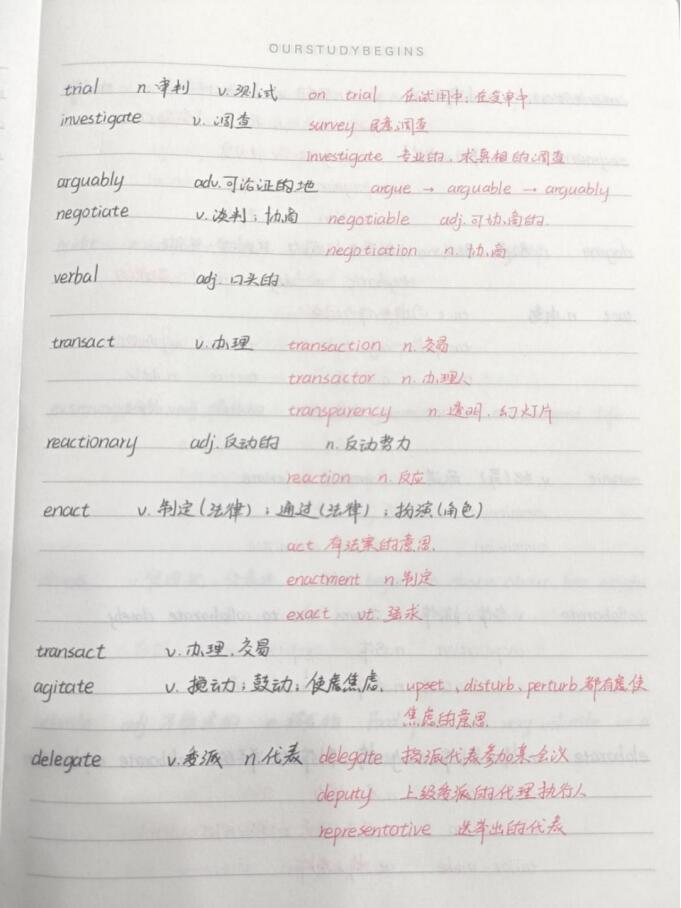 OURSTUDYBEGINS
trial n.审判 v.测试 on trial 在试用中；在受审中
investigate v.调查 survey 民意调查
investigate 专业的，求真相的调查
arguably adv.可论证的地 argue → arguable → arguably
negotiate v.谈判；协商 negotiable adj.可协商的.
negotiation n.协商
verbal adj.口头的
transact v.办理 transaction n.交易
transactor n.办理人
transparency n.透明，幻灯片
reactionary adj.反动的 n.反动势力
reaction n.反应
enact v.制定(法律)；通过(法律)；扮演(角色)
act 有法案的意思.
enactment n.制定
exact vt.强求
transact v.办理，交易
agitate v.搅动；鼓动；使焦虑. upset、disturb、perturb都有使
焦虑的意思
delegate v.委派 n.代表 delegate 指派代表参加某一会议
deputy 上级委派的代理执行人
representative 选举出的代表